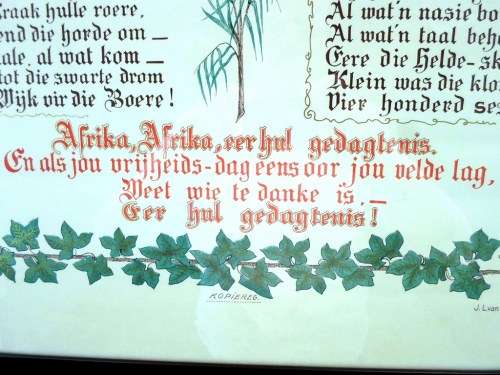 Kraak hulle roere,
end die horde om —
ale, al wat kom —
tot die swarte drom
Wijk vir die Boere!
Al wat'n nasie bo
Al wat'n taal behe
Eere die Helde-sk
Klein was die klo
Vier honderd ses
Afrika, Afrika, eer hul gedagtenis.
En als jou vrijheids-dag eens oor jou velde lag,
Weet wie te danke is, —
Eer hul gedagtenis!
KOPIEREG.
J. L. van